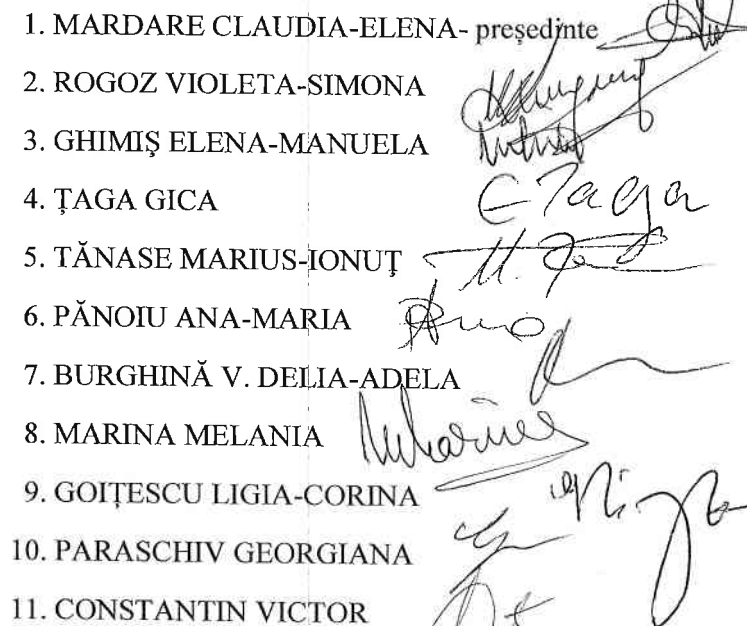 1. MARDARE CLAUDIA-ELENA- președinte
2. ROGOZ VIOLETA-SIMONA
3. GHIMIŞ ELENA-MANUELA
4. ȚAGA GICA
5. TĂNASE MARIUS-IONUȚ
6. PĂNOIU ANA-MARIA
7. BURGHINĂ V. DELIA-ADELA
8. MARINA MELANIA
9. GOIȚESCU LIGIA-CORINA
10. PARASCHIV GEORGIANA
11. CONSTANTIN VICTOR